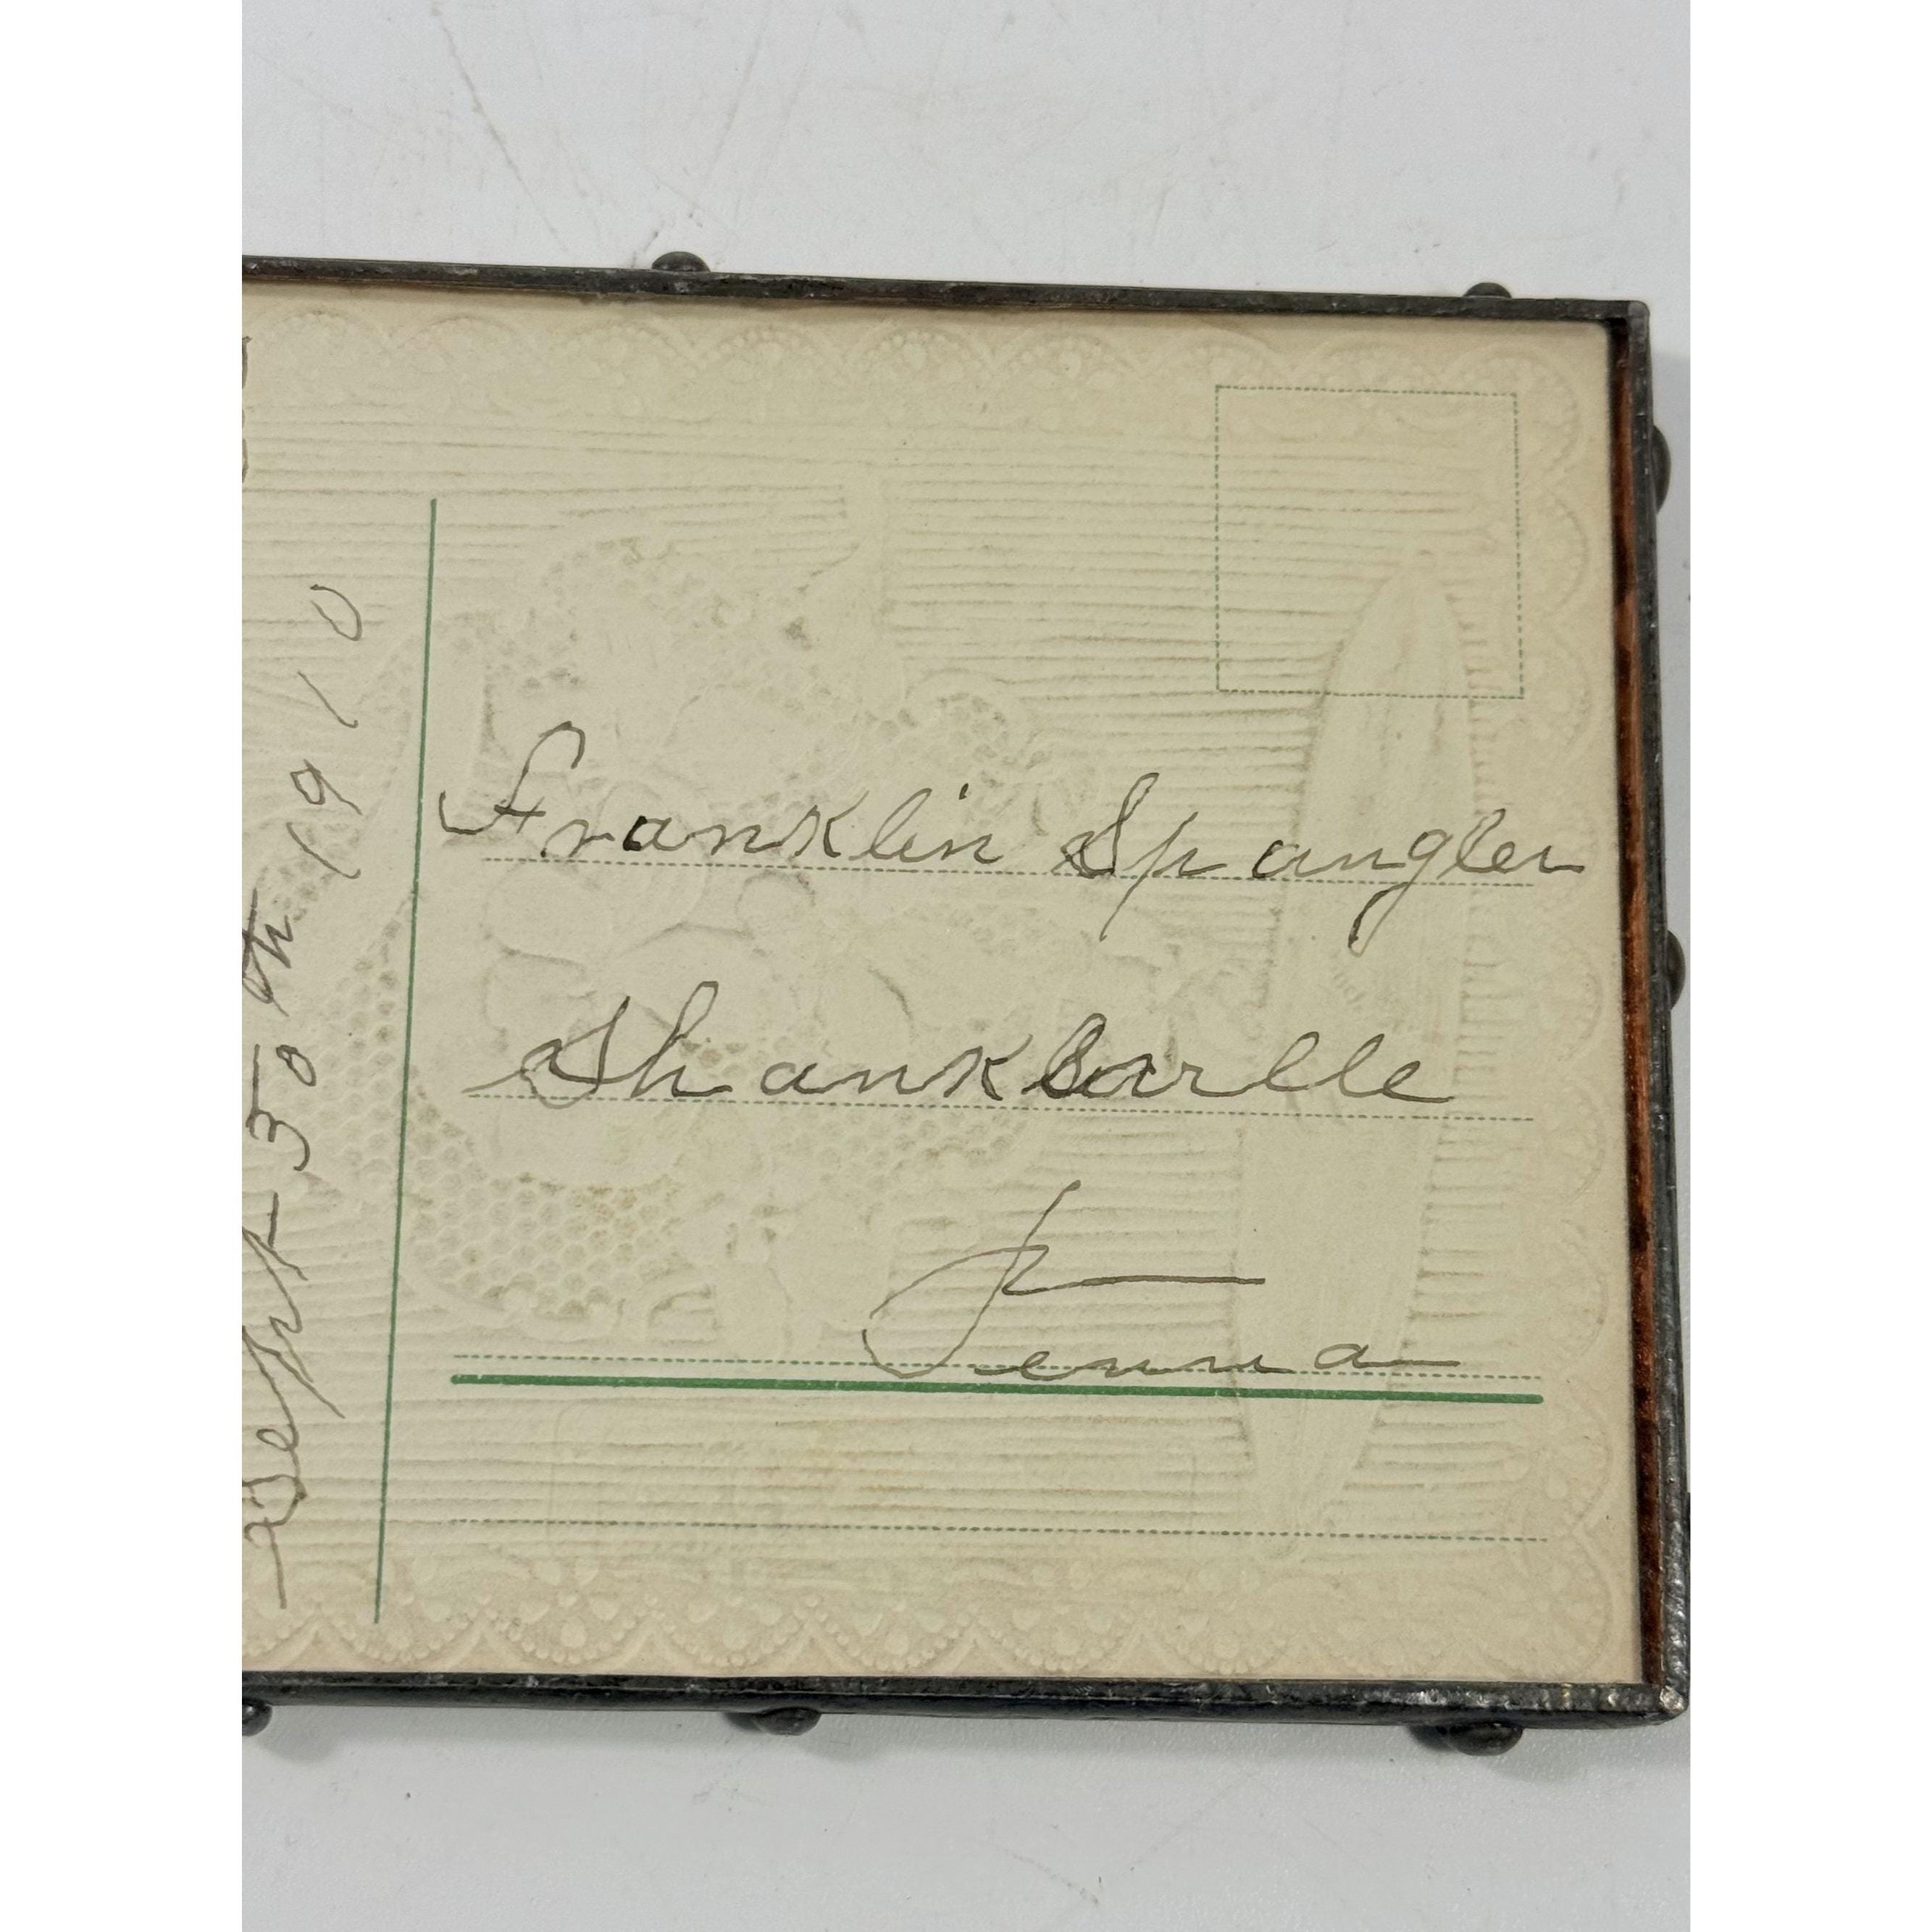 Sept 30th 1910
Franklin Spangler
Shanksville
Penna